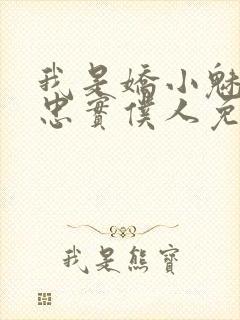 我是嬌小魅
忠實僕人兔
我是熊寶